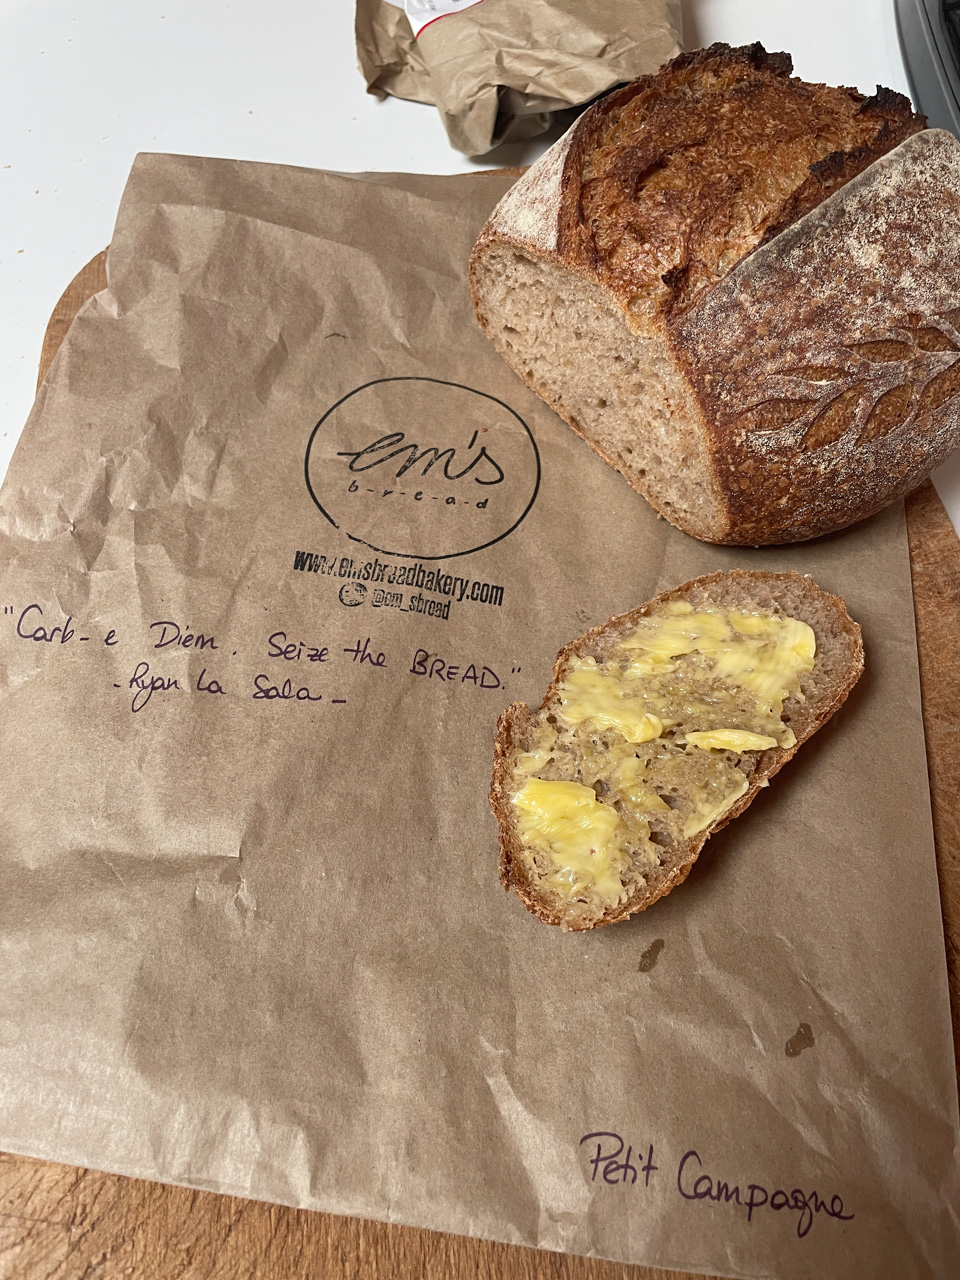 em's
b-r-e-a-d
www.emsbreadbakery.com
@em_sbread
"Carb-e Diem. Seize the BREAD."
-Ryan La Sala-
Petit Campagne